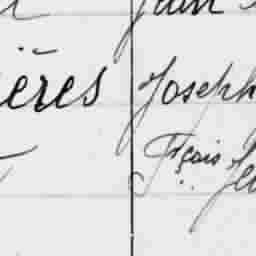 Jean
ières Joseph
Fçois Je